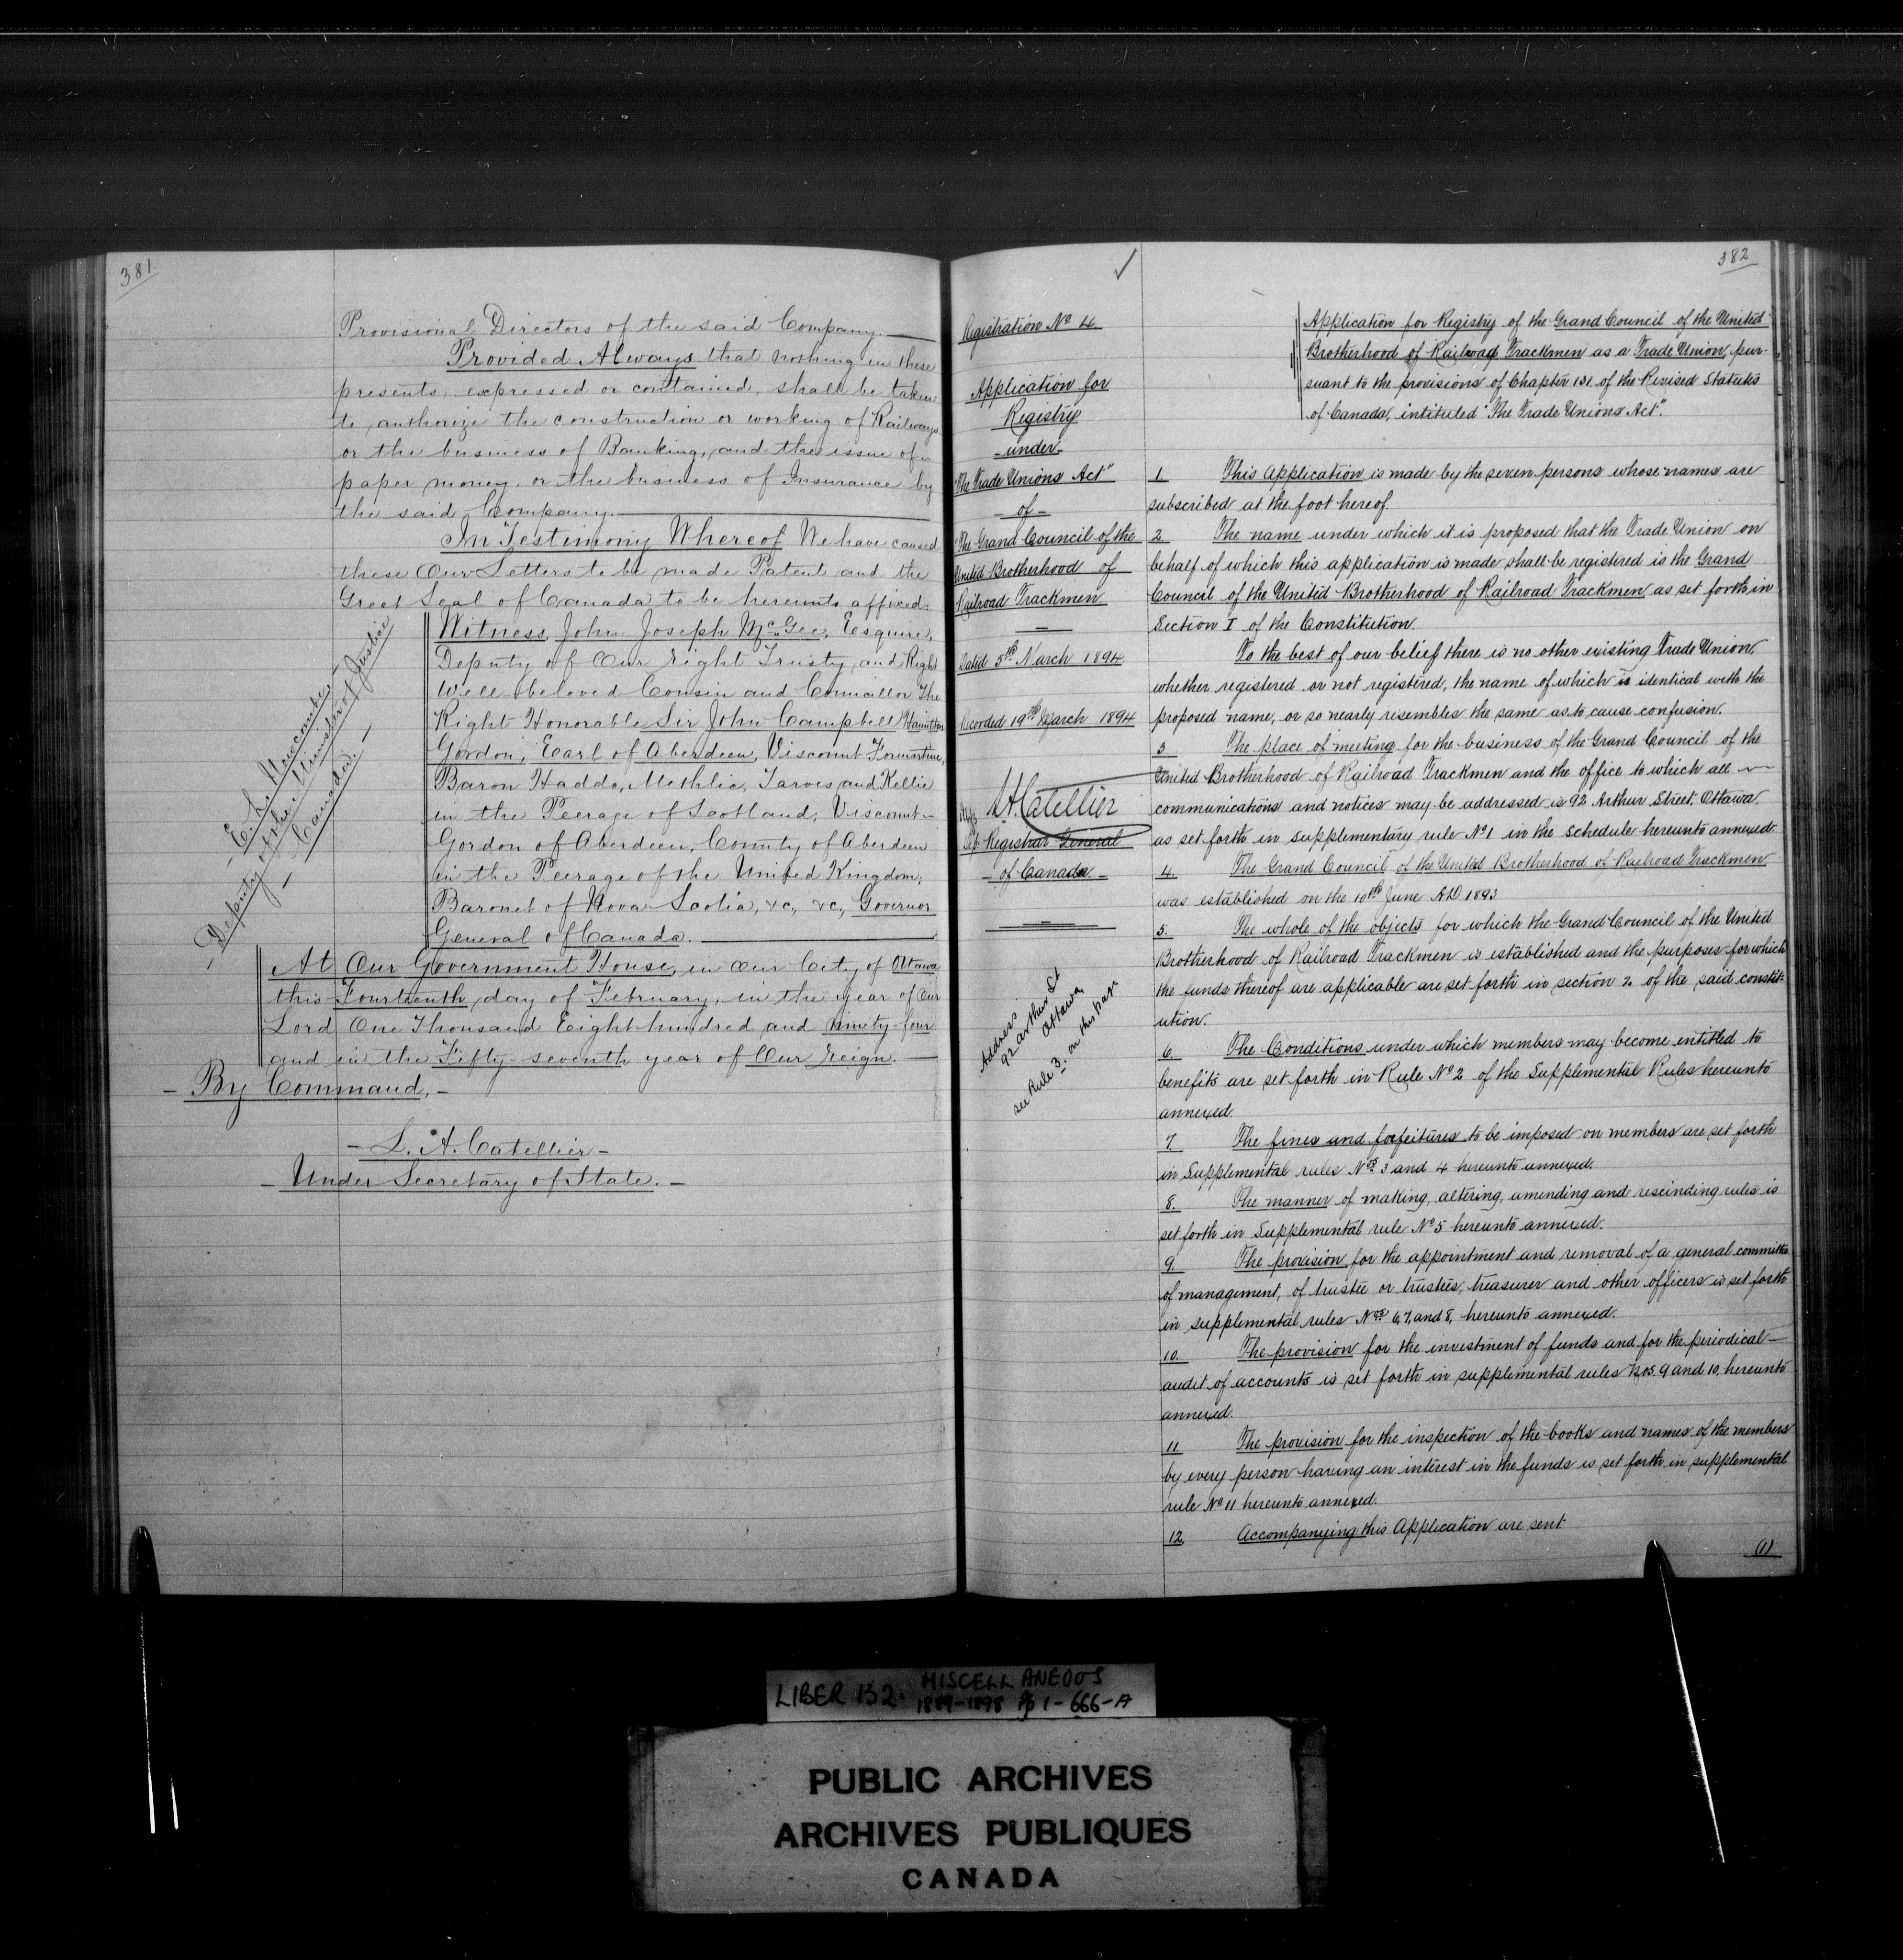 381.
Provisional Directors of the said Company.
Provided Always that nothing in these
presents, expressed or contained, shall be taken
to authorize the construction or working of Railways
or the business of Banking, and the issue of
paper money, or the business of Insurance by
the said Company.
In Testimony Whereof We have caused
these Our Letters to be made Patent and the
Great Seal of Canada to be hereunto affixed:
Witness, John Joseph McGee, Esquire,
Deputy of Our Right Trusty, and Right
Well-beloved Cousin and Councillor The
Right Honorable Sir John Campbell Hamilton
Gordon, Earl of Aberdeen, Viscount Formartine,
Baron Haddo, Methlic, Tarves and Kellie
in the Peerage of Scotland, Viscount
Gordon of Aberdeen, County of Aberdeen
in the Peerage of the United Kingdom;
Baronet of Nova Scotia, &c, &c, Governor
General of Canada.
- E. L. Newcombe, -
- Deputy of the Minister of Justice
- Canada. -
At Our Government House, in Our City of Ottawa
this Fourteenth day of February, in the year of Our
Lord One Thousand Eight hundred and ninety-four
and in the Fifty-seventh year of Our Reign.
- By Command, -
- L. A. Catellier -
- Under Secretary of State. -
382
Registration No 4
Application for
Registry
- under -
"The Trade Unions Act"
- of -
"The Grand Council of the
United Brotherhood of
Railroad Trackmen
Dated 5th March 1894
Recorded 19th March 1894
L. A. Catellier
Dep. Registrar General
- of Canada. -
Address
92 Arthur St
Ottawa
see Rule 3. on this page
Application for Registry of the Grand Council of the United
Brotherhood of Railroad Trackmen as a Trade Union, pur-
suant to the provisions of Chapter 131 of the Revised Statutes
of Canada, intituled "The Trade Unions Act".
1. This Application is made by the seven persons whose names are
subscribed at the foot hereof.
2 The name under which it is proposed that the Trade Union on
behalf of which this application is made shall be registered is the Grand
Council of the United Brotherhood of Railroad Trackmen as set forth in
Section I of the Constitution.
To the best of our belief there is no other existing Trade Union,
whether registered or not registered, the name of which is identical with the
proposed name, or so nearly resembles the same as to cause confusion.
3 The place of meeting for the business of the Grand Council of the
United Brotherhood of Railroad Trackmen and the office to which all
communications and notices may be addressed is 92 Arthur Street, Ottawa.
as set forth in supplementary rule No 1 in the schedule hereunto annexed.
4. The Grand Council of the United Brotherhood of Railroad Trackmen
was established on the 10th June AD 1893
5. The whole of the objects for which the Grand Council of the United
Brotherhood of Railroad Trackmen is established and the purposes for which
the funds thereof are applicable are set forth in section 2. of the said constit-
ution.
6 The Conditions under which members may become entitled to
benefits are set forth in Rule No 2 of the Supplemental Rules hereunto
annexed.
7. The fines and forfeitures to be imposed on members are set forth
in Supplemental rules Nos 3 and 4 hereunto annexed.
8. The manner of making, altering, amending and rescinding rules is
set forth in Supplemental rule No 5 hereunto annexed.
9. The provision for the appointment and removal of a general committee
of management, of trustee or trustees, treasurer and other officers is set forth
in supplemental rules Nos 6, 7, and 8, hereunto annexed.
10. The provision for the investment of funds and for the periodical
audit of accounts is set forth in supplemental rules Nos. 9 and 10, hereunto
annexed.
11 The provision for the inspection of the books and names of the members
by every person having an interest in the funds is set forth in supplemental
rule No 11 hereunto annexed.
12. Accompanying this Application are sent
(1)
LIBER 132. MISCELLANEOUS
1889-1898 Pp 1-666-A
PUBLIC ARCHIVES
ARCHIVES PUBLIQUES
CANADA